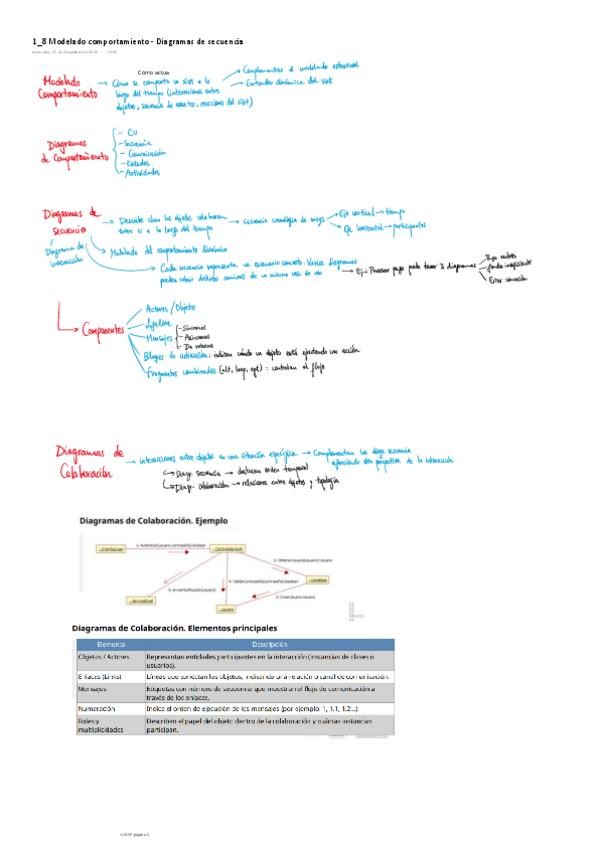 1_8 Modelado comportamiento - Diagramas de secuencia
Cómo actua
Modelado
Comportamiento
Cómo se comporta un sist a lo
largo del tiempo (interacciones entre
objetos, secuencia de eventos, reacciones del sist)
Complementar el modelado estructural
Entender dinámica del sist
Diagramas
de Comportamiento
- CU
- Secuencia
- Comunicación
- Estados
- Actividades
Diagramas de
secuencia
Diagrama de
interacción
Describe cómo los objetos colaboran
entre sí a lo largo del tiempo
secuencia cronológica de
Eje vertical → tiempo
Eje horizontal → participantes
Modelado del comportamiento dinámico
Cada secuencia representa un escenario concreto. Varios diagramas
pueden cubrir distintos caminos de un mismo caso de uso
Ej: Procesar pago puede tener 3 diagramas
Pago exitoso
Fondo insuficiente
Error conexión
Componentes
Actores / Objeto
Lifeline
Mensajes
- Síncronos
- Asíncronos
- De retorno
Bloques de activación: indican cuándo un objeto está ejecutando una acción
Fragmentos combinados (alt, loop, opt): controlan el flujo
Diagramas de
Colaboración
interacciones entre objetos en una situación específica → Complementan los diag. secuencia
ofreciendo otra perspectiva de la interacción
Diag. secuencia → destacan orden temporal
Diag. colaboración → relaciones entre objetos y topología
Diagramas de Colaboración. Ejemplo
Diagramas de Colaboración. Elementos principales
Elemento Descripción
Objetos / Actores Representan entidades participantes en la interacción (instancias de clases o
usuarios).
Enlaces (Links) Líneas que conectan los objetos, indicando una relación o canal de comunicación.
Mensajes Etiquetas con número de secuencia que muestran el flujo de comunicación a
través de los enlaces.
Numeración Indica el orden de ejecución de los mensajes (por ejemplo: 1, 1.1, 1.2...)
Roles y
multiplicidades
Describen el papel del objeto dentro de la colaboración y cuántas instancias
participan.